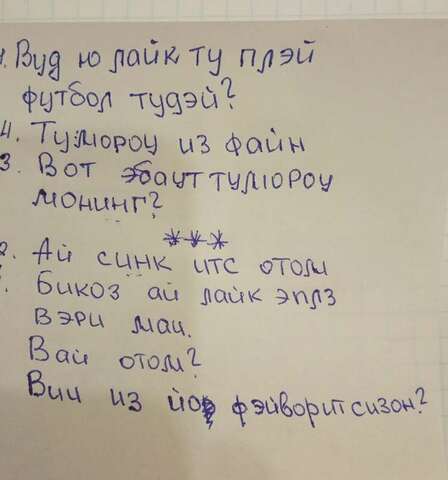 1. Вуд ю лайк ту плэй
футбол тудэй?
4. Тумороу из файн
3. Вот эбаут тумороу
монинг?
***
2. Ай синк итс отом
Бикоз ай лайк эплз
вэри мач.
Вай отом?
Вич из йор фэйворит сизон?